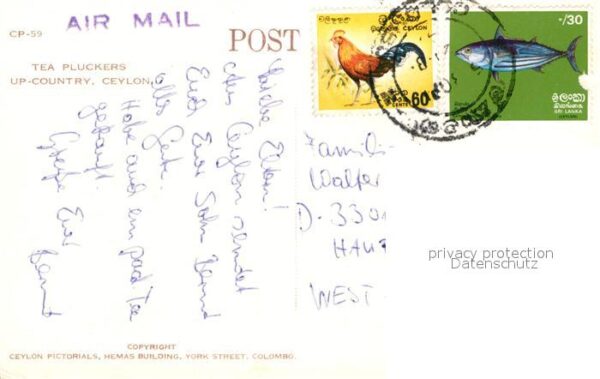 AIR MAIL
CP-59
POST CARD
TEA PLUCKERS
UP-COUNTRY, CEYLON
Liebe Eltern!
Aus Ceylon sendet
Euch Euer Sohn Bernd
alles Gute.
Habe auch ein paar Tee
gekauft.
Grüße Euer
Bernd
Famili
Walter
D-330
HAU
WEST-
ශ්‍රී ලංකා
CEYLON
60
CENTS
-/30
ශ්‍රී ලංකා
SRI LANKA
privacy protection
Datenschutz
COPYRIGHT
CEYLON PICTORIALS, HEMAS BUILDING, YORK STREET, COLOMBO.